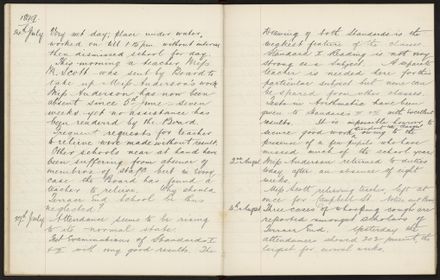 1899.
20th July Very wet day; place under water,
worked on till 1.15pm without interval
then dismissed school for day.
This morning a teacher, Miss
M. Scott was sent by Board to
take up Miss Anderson's work.
Miss Anderson has now been
absent since 5th June - seven
weeks yet no assistance has
been rendered by the Board.
Frequent requests for teacher
to relieve were made without result.
Other schools near at hand have
been suffering from absence of
members of staff but in every
case the Board has found a
teacher to relieve. Why should
Terrace End School be thus
neglected?
27th July Attendance seems to be rising
to its normal state.
Examinations of Standards I
with very good results. The
Drawing of both Standards is the
weakest feature of the classes.
Standard I Reading is not very
strong as a subject. A separate
teacher is needed here for this
particular subject but none can
be spared from other classes.
Tests in Arithmetic have been
given to Standards with excellent
results. It is impossible however to
secure good work owing to the
presence of a few pupils who have
missed much of the school year
2nd August Miss Anderson returned to duties
today after an absence of eight
weeks.
Miss Scott relieving teacher, left at
once for Campbell St.
Three cases of whooping cough are
reported amongst scholars of
Terrace End. Yesterday the
attendances showed 302 present, the
largest for several weeks.